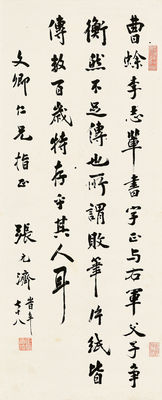 曹蜍李志輩書字正與右軍父子爭
衡然不足傳也所謂敗筆片紙皆
傳數百歲特存乎其人耳
文卿仁兄指正
張元濟
時年七十八